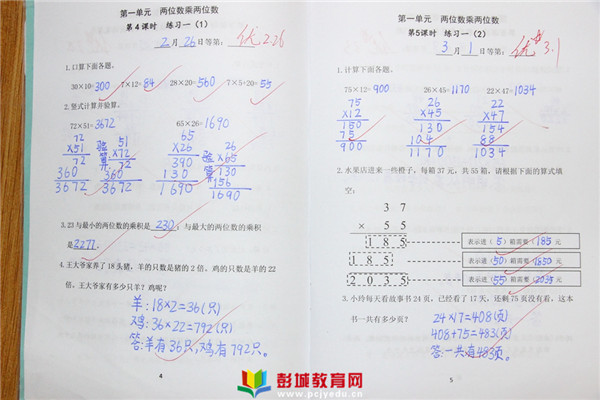 第一单元 两位数乘两位数
第4课时 练习一（1）
2月26日等第： 优 2.26
1.口算下面各题。
30×10=300 7×12=84 28×20=560 7×5+20=55
2.竖式计算并验算。
72×51=3672 65×26=1690
72 验算 51 65 验算 26
×51 ×72 ×26 ×65
72 360 390 130
360 3672 130 156
3672 1690 1690
3.23与最小的两位数的乘积是 230；与最大的两位数的乘积
是 2277。
4.王大爷家养了18头猪，羊的只数是猪的2倍、鸡的只数是羊的22
倍，王大爷家有多少只羊？鸡呢？
羊：18×2=36(只)
鸡：36×22=792(只)
答：羊有36只，鸡有792只。
4
第一单元 两位数乘两位数
第5课时 练习一（2）
3月1日等第： 优 3.1
1.计算下面各题。
75×12=900 26×45=1170 22×47=1034
75 26 22
×12 ×45 ×47
150 130 154
75 104 88
900 1170 1034
2.水果店进来一些橙子，每箱37元，共55箱，请根据下面的算式填
空：
3 7
× 5 5
1 8 5 表示进（5）箱需要（185元
1 8 5 表示进（50）箱需要（1850元
2 0 3 5 表示进（55）箱需要（2035元
3.小玲每天看故事书24页，已经看了17天，还剩75页没有看，这本
书一共有多少页？
24×17=408(页)
408+75=483(页)
答：一共有483页。
5
彭城教育网
www.pcjyedu.cn